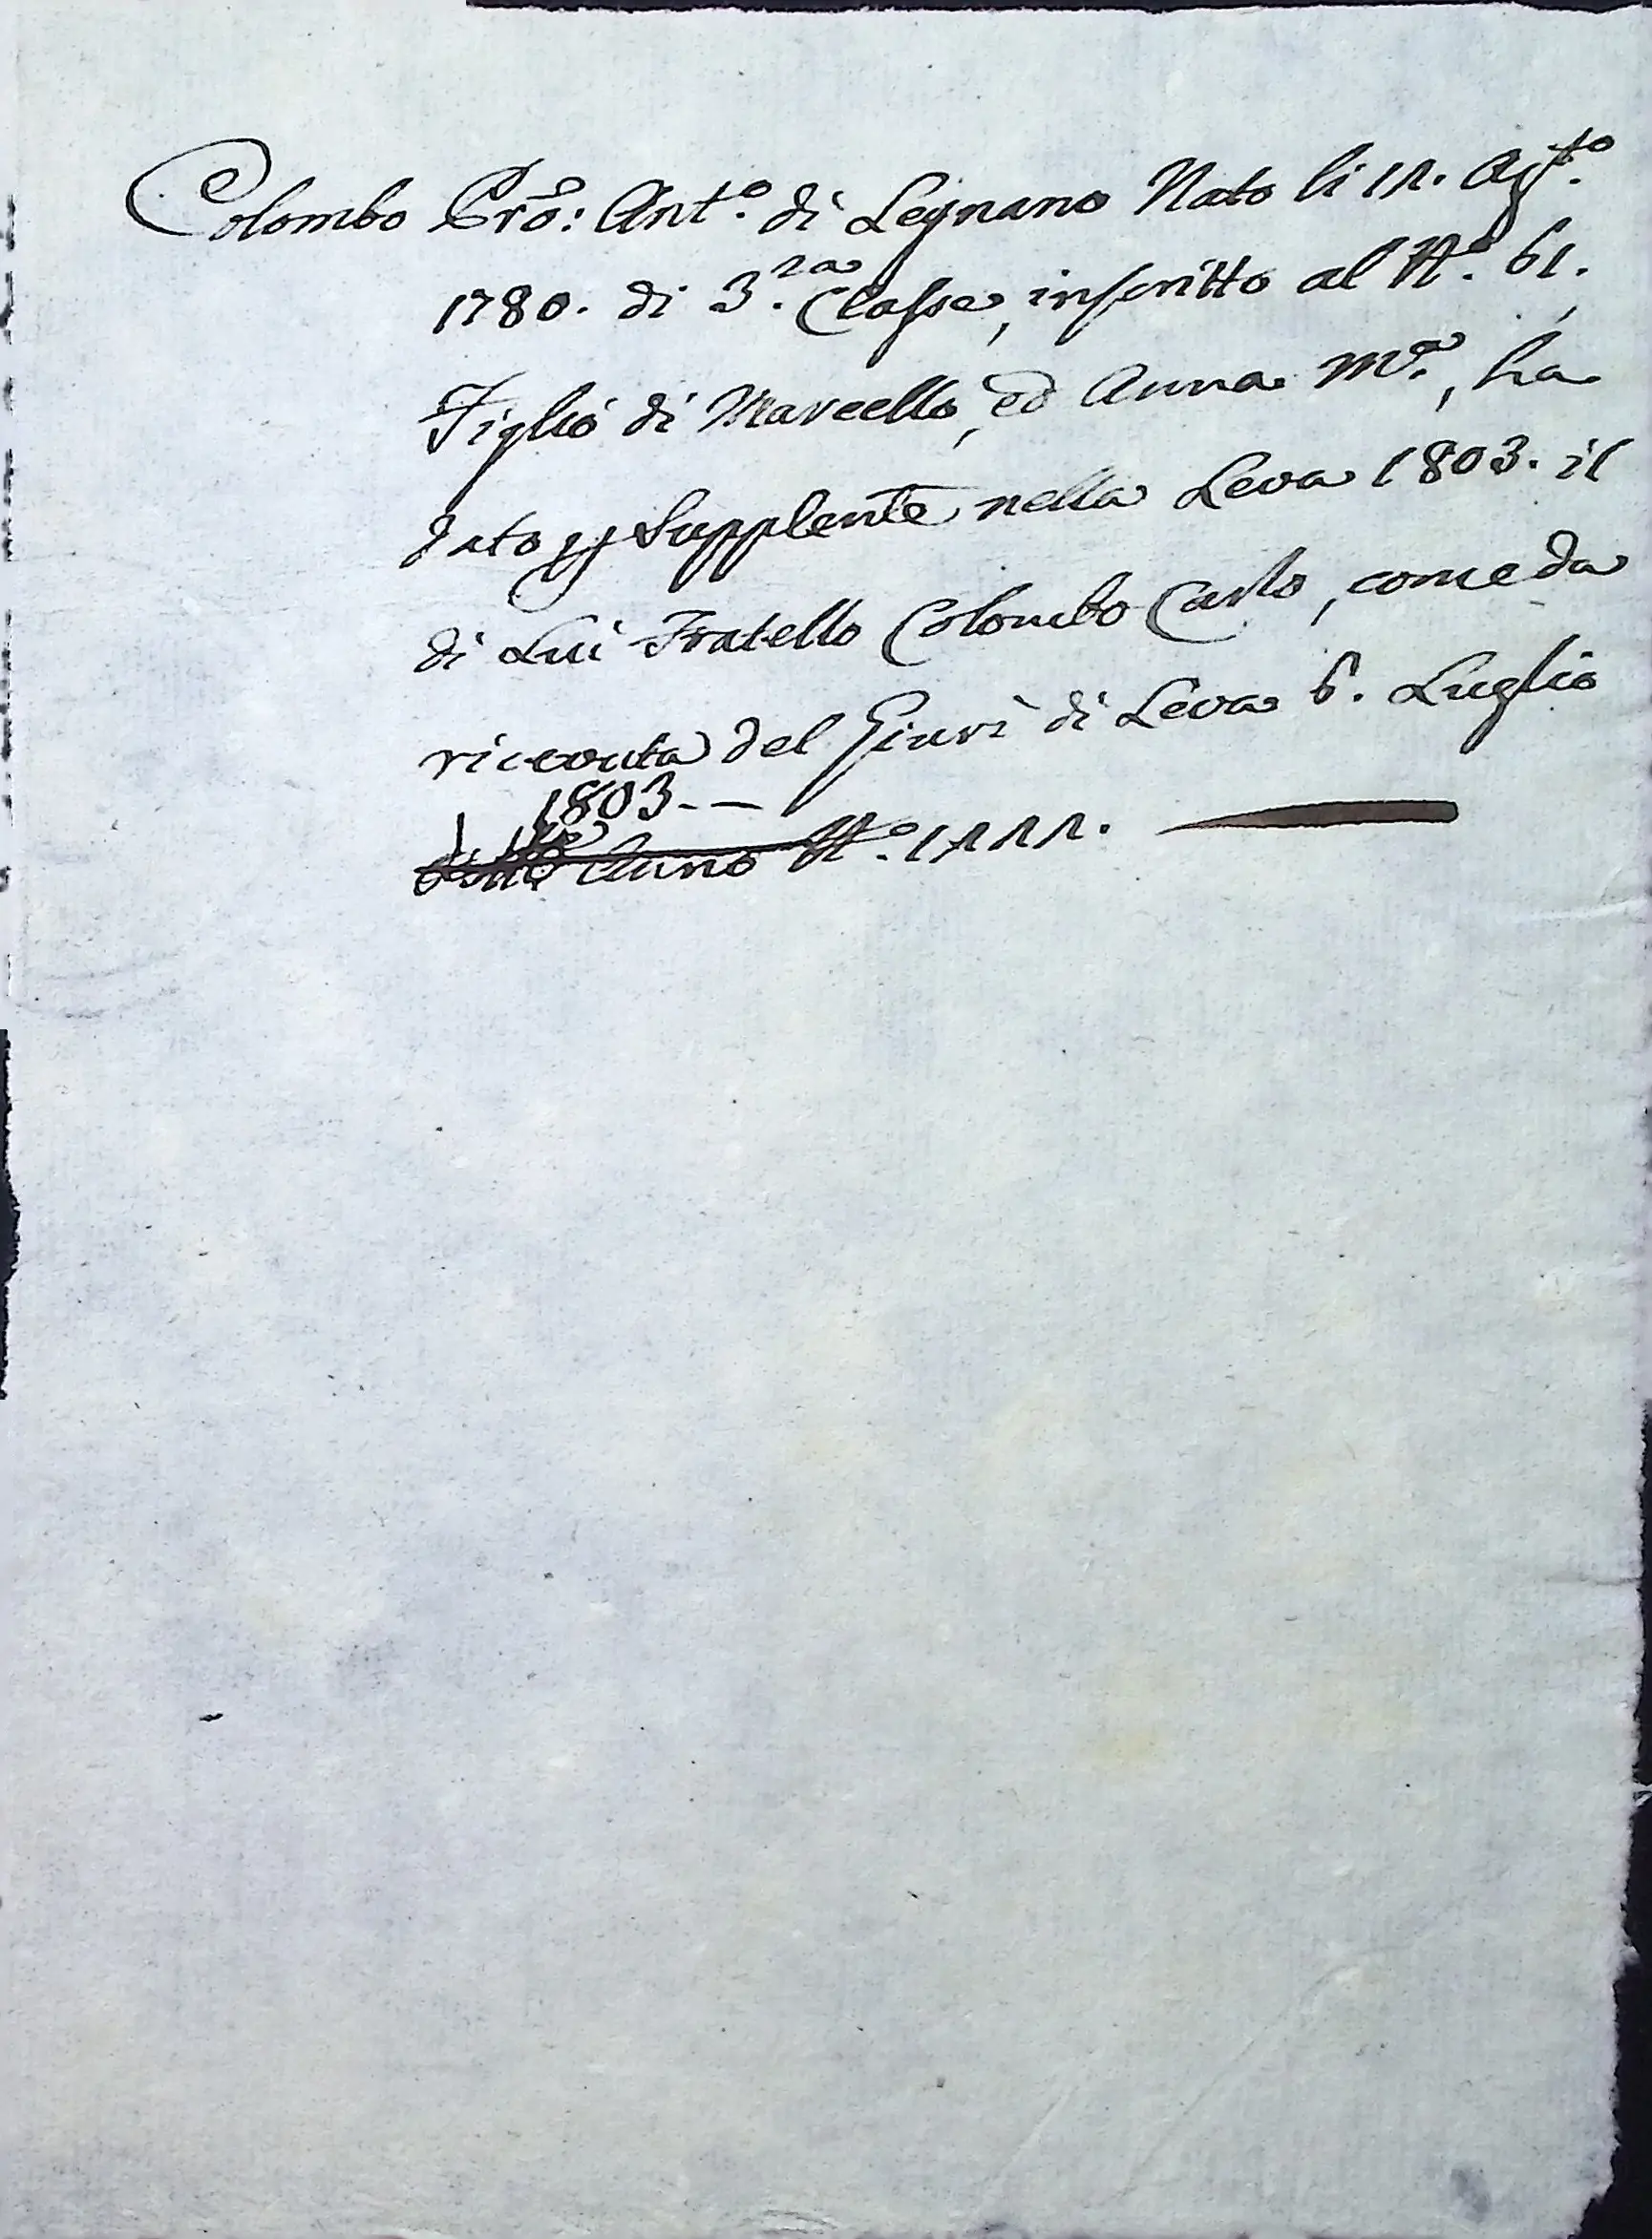 Colombo Pro: Ant.o di Legnano Nato li 12. Ag.to
1780. di 3.za Classe, inscritto al N.o 61.,
Figlio di Marcello, ed Anna M.a, ha
dato p Supplente nella Leva 1803. il
di Lui Fratello Colombo Carlo, come da
ricevuta del Giurì di Leva 6. Luglio
1803. —
Anno N.o 1222.